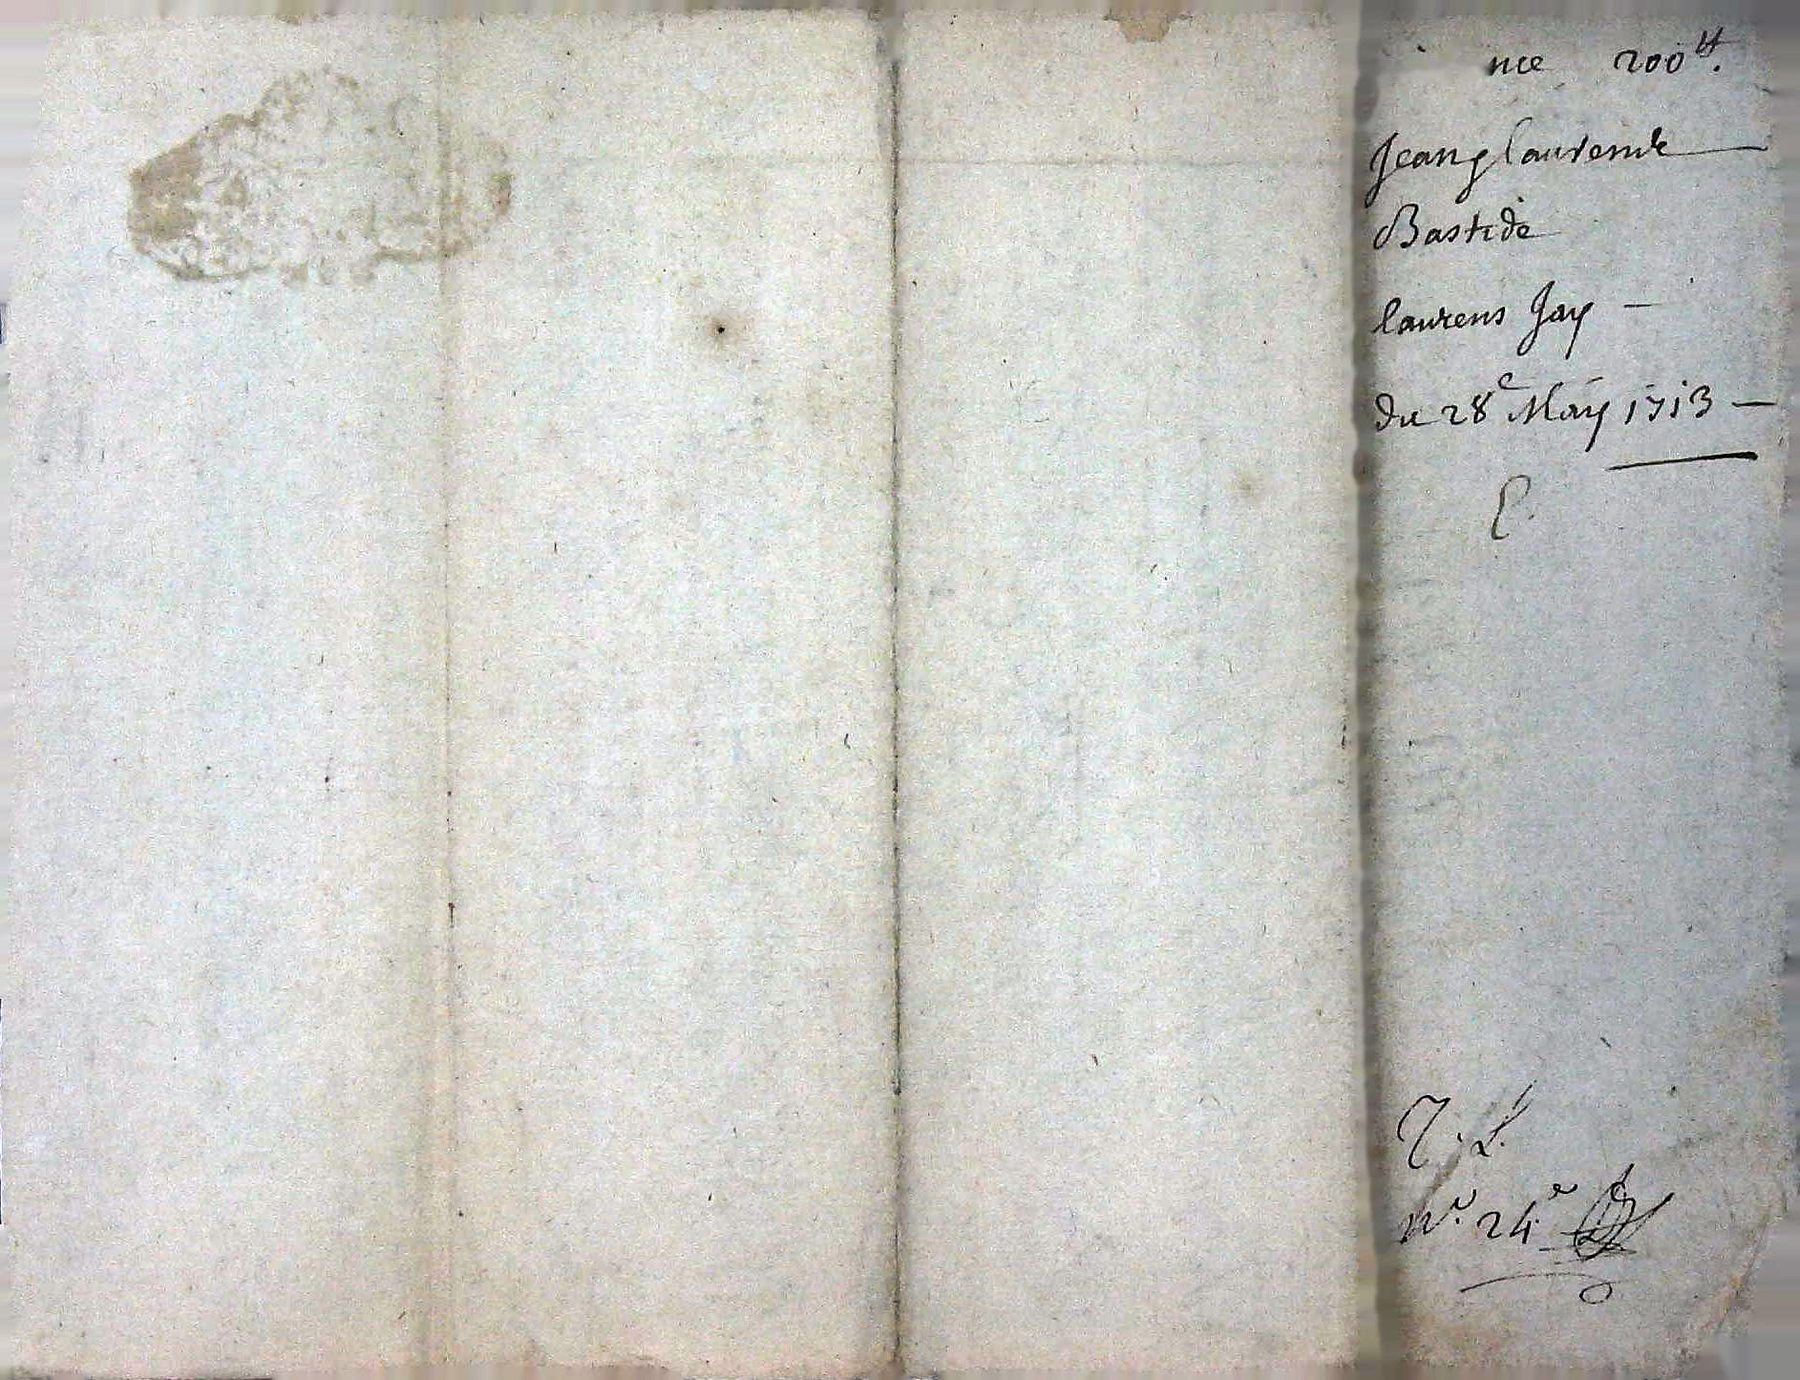 nce 200tt.
Jean Laurens de
Bastide
laurens Jay —
du 28e May 1713 —
E.
N.e 24.e